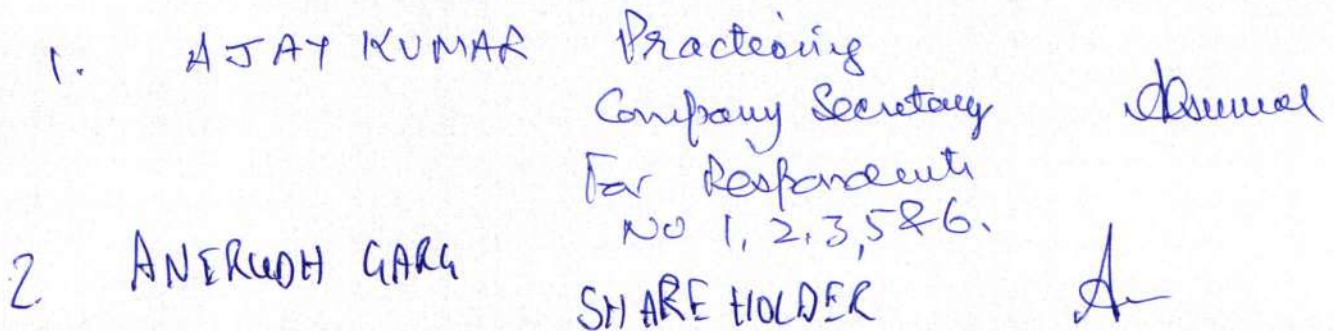 1. AJAY KUMAR Practicing
Company Secretary
For Respondents
NO 1, 2, 3, 5 & 6.
2. ANERUDH GARG
SHARE HOLDER